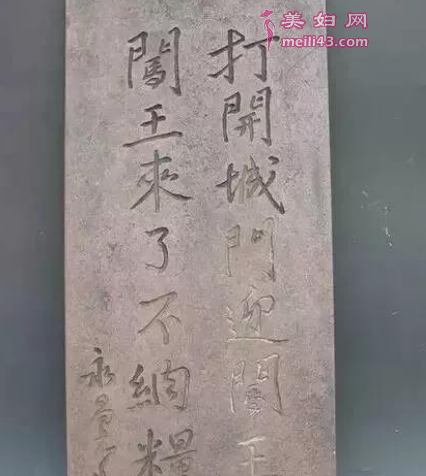 美妇网
meili43.com
打開城門迎闖王
闖王來了不納糧
永